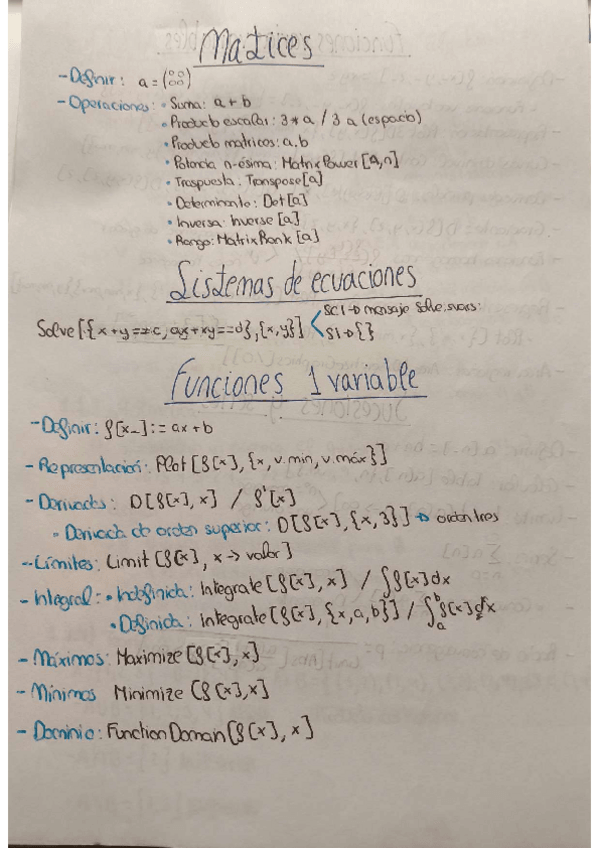 Matrices
- Definir: a = (° ° ° °)
- Operaciones: • Suma: a + b
• Producto escalar: 3 * a / 3 a (espacio)
• Producto matrices: a.b
• Potencia n-ésima: MatrixPower[a,n]
• Traspuesta: Transpose[a]
• Determinante: Det[a]
• Inversa: Inverse [a]
• Rango: MatrixRank [a]
Sistemas de ecuaciones
Solve[{x+y==c, ax+xy==d},{x,y}]
SCI → mensaje Solve:svars:
SI → {}
Funciones 1 variable
- Definir: f[x_] := ax + b
- Representación: Plot [f[x], {x, v.min, v.máx}]
- Derivadas: D[f[x], x] / f'[x]
• Derivada de orden superior: D[f[x], {x, 3}] → orden tres
- Límites: Limit [f[x], x -> valor]
- Integral: • Indefinida: Integrate [f[x], x] / ∫f[x]dx
• Definida: Integrate [f[x], {x, a, b}] / ∫ₐᵇ f[x]dx
- Máximos: Maximize [f[x], x]
- Mínimos Minimize [f[x], x]
- Dominio: FunctionDoman [f[x], x]